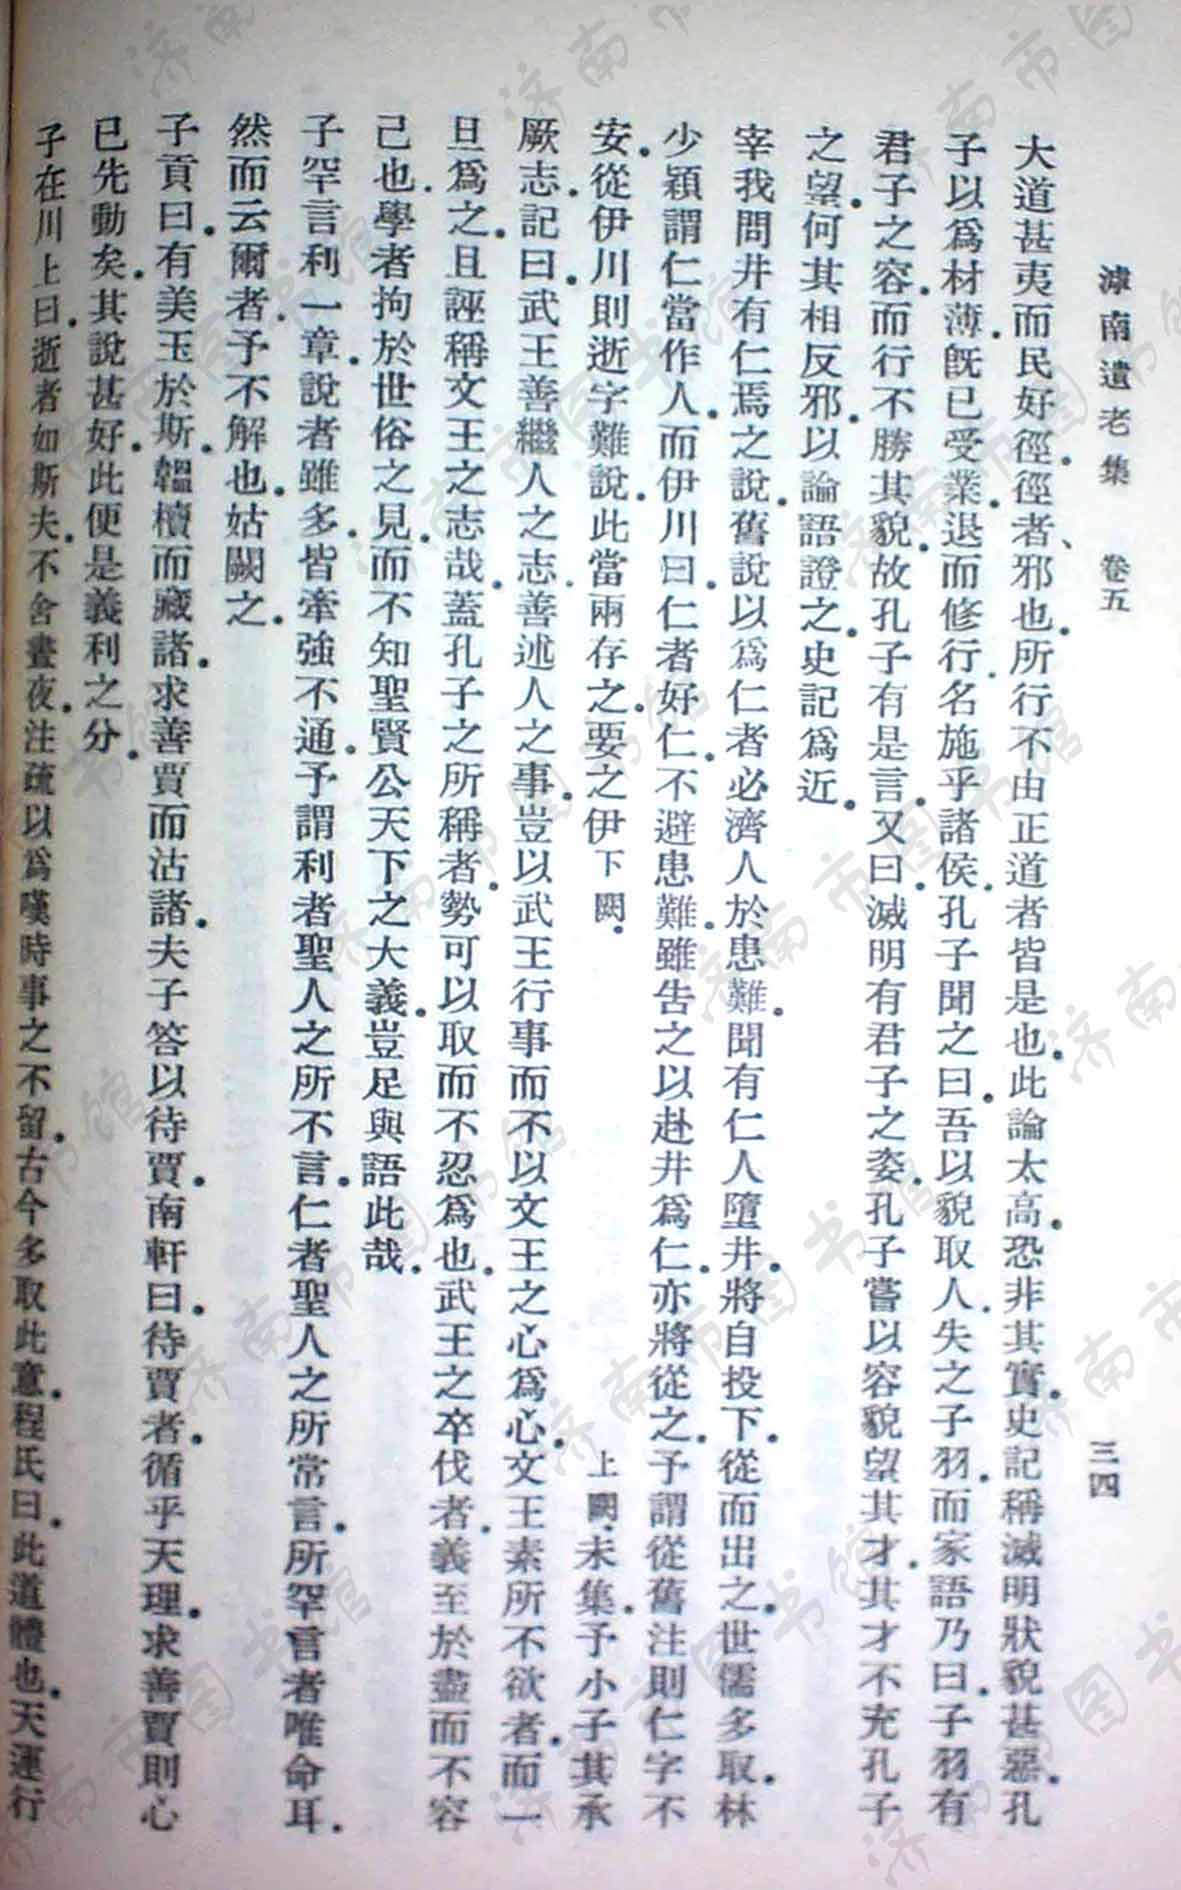 滹南遺老集　卷五　三四
大道甚夷而民好徑徑者、邪也所行不由正道者皆是也此論太高恐非其實史記稱滅明狀貌甚惡孔
子以爲材薄旣已受業退而修行名施乎諸侯孔子聞之曰吾以貌取人失之子羽而家語乃曰子羽有
君子之容而行不勝其貌故孔子有是言又曰滅明有君子之姿孔子嘗以容貌望其才其才不充孔子
之望何其相反邪以論語證之史記爲近
宰我問井有仁焉之說舊說以爲仁者必濟人於患難聞有仁人墮井將自投下從而出之世儒多取林
少穎謂仁當作人而伊川曰仁者好仁不避患難雖告之以赴井爲仁亦將從之予謂從舊注則仁字不
安從伊川則逝字難說此當兩存之要之伊下闕　上闕未集予小子其承
厥志記曰武王善繼人之志善述人之事豈以武王行事而不以文王之心爲心文王素所不欲者而一
旦爲之且誣稱文王之志哉蓋孔子之所稱者勢可以取而不忍爲也武王之卒伐者義至於盡而不容
己也學者拘於世俗之見而不知聖賢公天下之大義豈足與語此哉
子罕言利一章說者雖多皆牽強不通予謂利者聖人之所不言仁者聖人之所常言所罕言者唯命耳
然而云爾者予不解也姑闕之
子貢曰有美玉於斯韞櫝而藏諸求善賈而沽諸夫子答以待賈南軒曰待賈者循乎天理求善賈則心
已先動矣其說甚好此便是義利之分
子在川上曰逝者如斯夫不舍晝夜注疏以爲嘆時事之不留古今多取此意程氏曰此道體也天運行
济南市图书馆